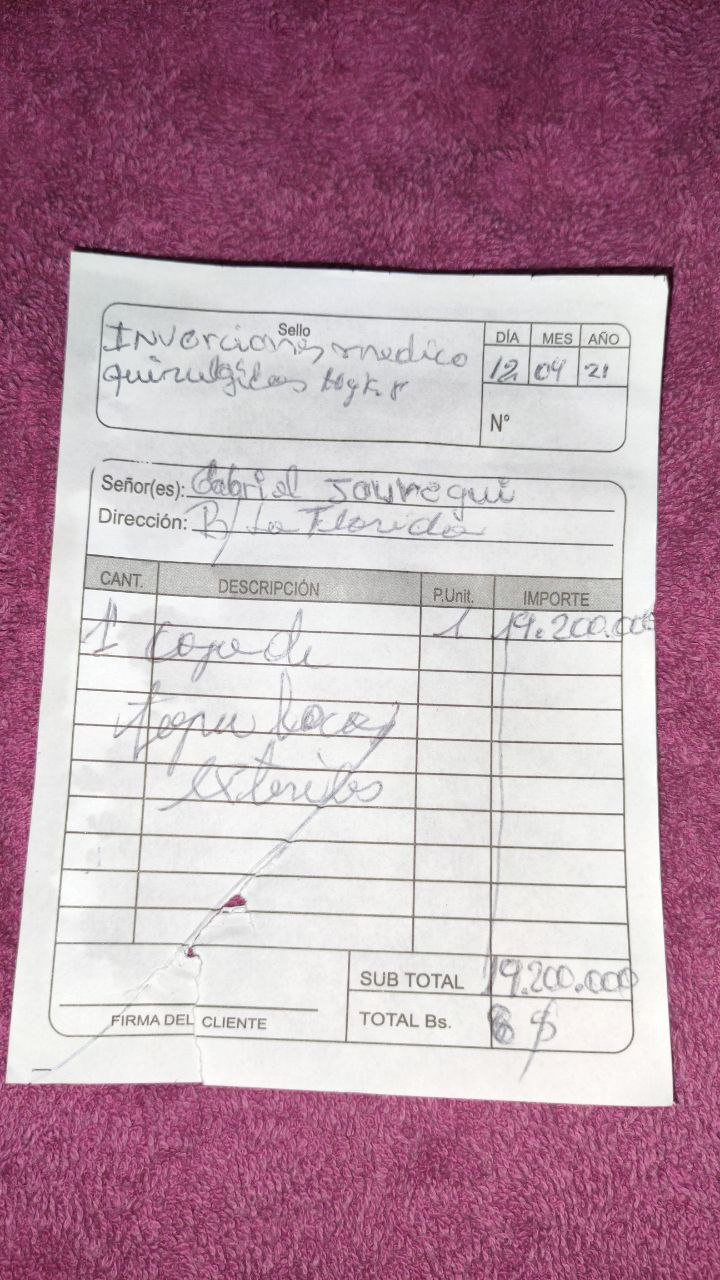 Sello
Inverciones medico
quirulgicas
DÍA MES AÑO
12 04 21
N°
Señor(es): Gabriel Jauregui
Dirección: B/ La Florida
CANT. DESCRIPCIÓN P.Unit. IMPORTE
1 caja de 1 19.200.000
tapa bocas
exteriles
SUB TOTAL 19.200.000
TOTAL Bs. 8 $
FIRMA DEL CLIENTE